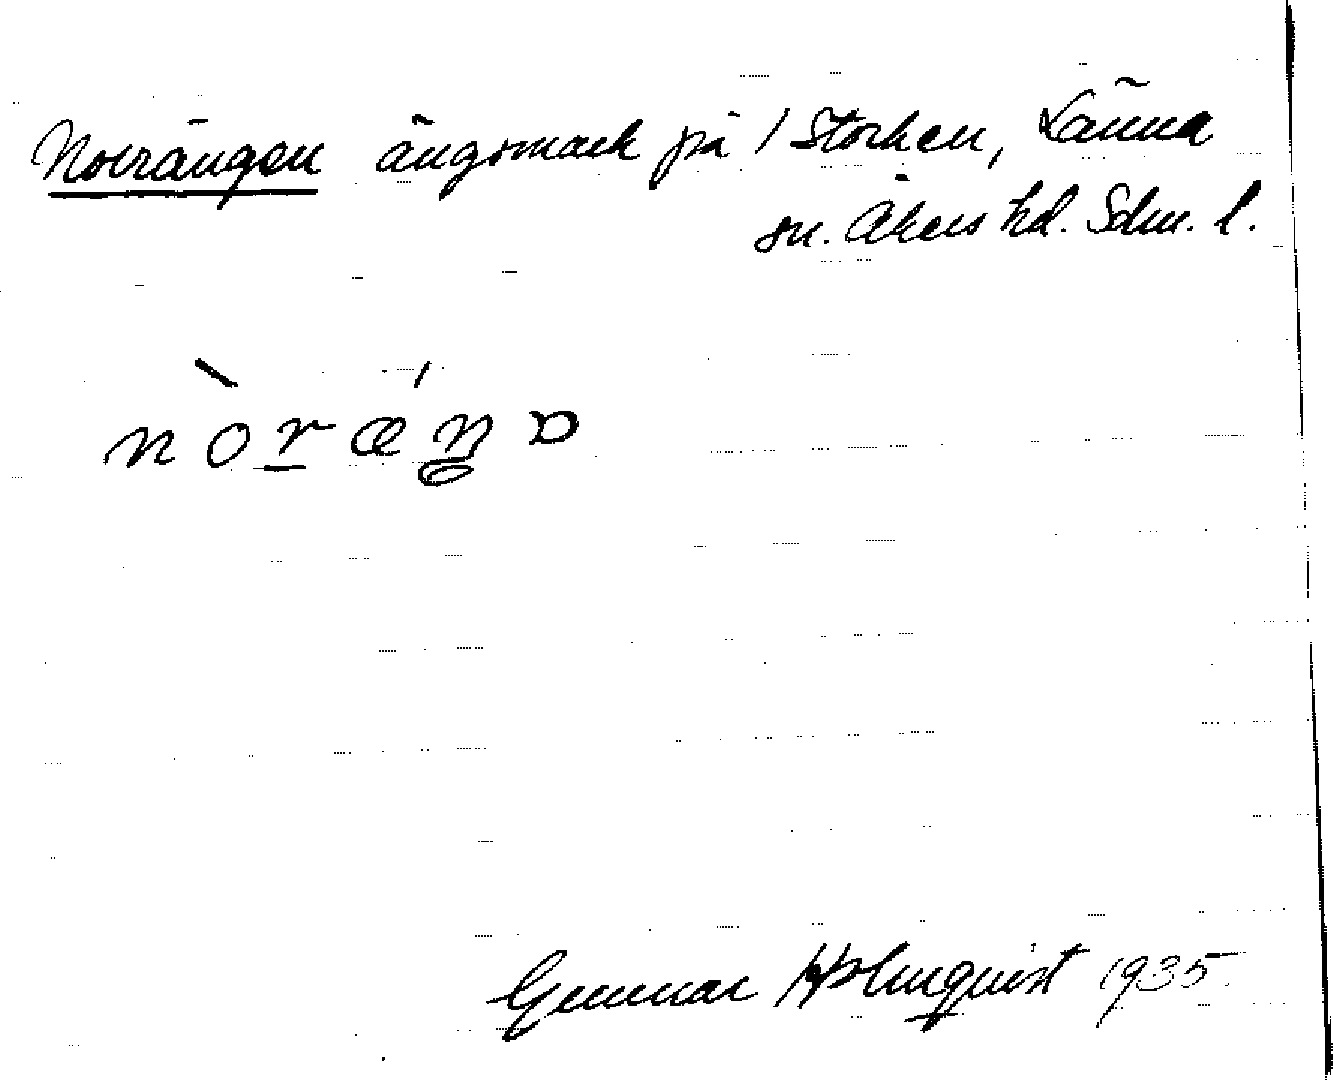 Norrängen ängsmark på / Storken, Länna
sn. Åkers hd. Sdm. l.
nòrǽŋa
Gunnar Holmquist 1935.